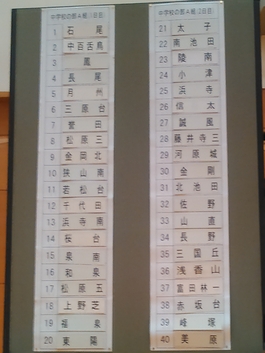 中学校の部A組(1日目)
1 石尾
2 中百舌鳥
3 鳳
4 長尾
5 月州
6 三原台
7 誉田
8 松原三
9 金岡北
10 狭山南
11 若松台
12 千代田
13 浜寺南
14 桜台
15 泉南
16 和泉
17 松原五
18 上野芝
19 福泉
20 東陽
中学校の部A組(2日目)
21 太子
22 南池田
23 陵南
24 小津
25 浜寺
26 信太
27 誠風
28 藤井寺三
29 河原城
30 金剛
31 北池田
32 佐野
33 山直
34 長野
35 三国丘
36 浅香山
37 富田林一
38 赤坂台
39 峰塚
40 美原